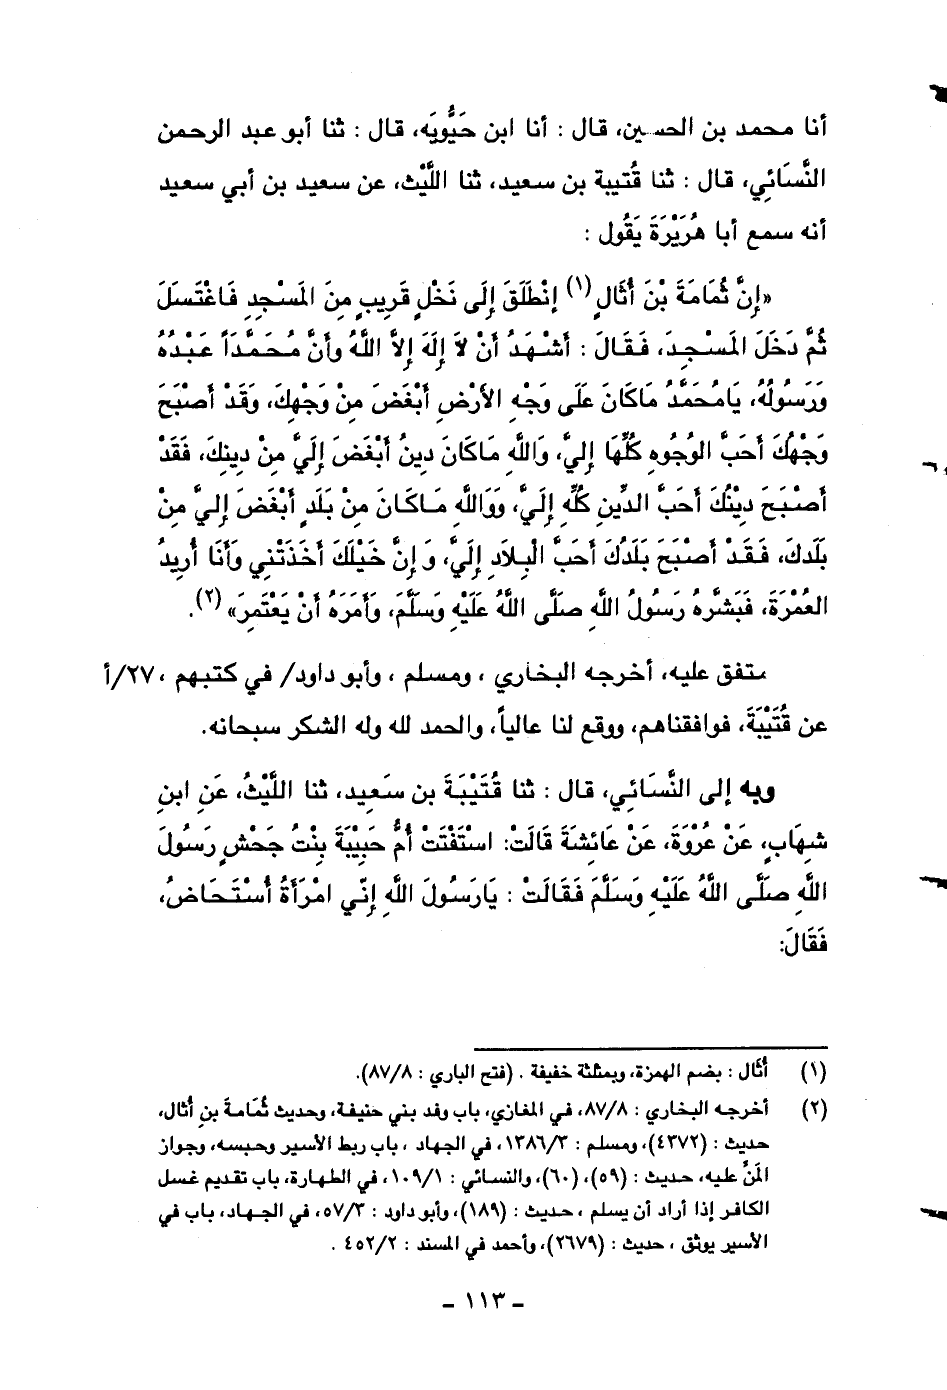 أنا محمد بن الحسين، قال : أنا ابن حَيُّويَه، قال : ثنا أبو عبد الرحمن
النَّسَائِي، قال : ثنا قُتيبة بن سعيد، ثنا اللَّيْث، عن سعيد بن أبي سعيد
أنه سمع أبا هُرَيْرَةَ يَقُول :
«إِنَّ ثُمَامَةَ بْنَ أُثَالٍ (١) إنْطَلَقَ إِلَى نَخْلٍ قَرِيبٍ مِنَ المَسْجِدِ فَاغْتَسَلَ
ثُمَّ دَخَلَ المَسْجِدَ، فَقَالَ : أَشْهَدُ أَنْ لاَ إِلَهَ إِلاَّ اللَّهُ وأَنَّ مُحَمَّدَاً عَبْدُهُ
وَرَسُولُهُ، يَامُحَمَّدُ مَاكَانَ عَلَى وَجْهِ الأَرْضِ أَبْغَضَ مِنْ وَجْهِكَ، وَقَدْ أَصْبَحَ
وَجْهُكَ أَحَبَّ الوُجُوهِ كُلِّهَا إِلِيَّ، وَاللَّهِ مَاكَانَ دِينُ أَبْغَضَ إِلَيَّ مِنْ دِينِكَ، فَقَدْ
أَصْبَحَ دِيْنُكَ أَحَبَّ الدِّينِ كُلِّهِ إِلَيَّ، وَوَاللَّهِ مَاكَانَ مِنْ بَلَدٍ أَبْغَضَ إِلِيَّ مِنْ
بَلَدِكَ، فَقَدْ أَصْبَحَ بَلَدُكَ أَحَبَّ الْبِلاَدِ إِلَيَّ، وَإِنَّ خَيْلَكَ أَخَذَتْنِي وَأَنَا أُرِيدُ
العُمْرَةَ، فَبَشَّرَهُ رَسُولُ اللَّهِ صَلَّى اللَّهُ عَلَيْهِ وَسَلَّمَ، وَأَمَرَهُ أَنْ يَعْتَمِرَ» (٢).
متفق عليه، أخرجه البخاري ، ومسلم ، وأبو داود/ في كتبهم ، ٢٧/أ
عن قُتَيْبَةَ، فوافقناهم، ووقع لنا عالياً، والحمد لله وله الشكر سبحانه.
وبه إلى النَّسَائِي، قال : ثنا قُتَيْبَةَ بن سَعِيد، ثنا اللَّيْثُ، عَنِ ابنِ
شِهَابٍ، عَنْ عُرْوَةَ، عَنْ عَائِشَةَ قَالَتْ: اسْتَفْتَتْ أُمُّ حَبِيْبَةَ بِنْتُ جَحْشٍ رَسُولَ
اللَّهِ صَلَّى اللَّهُ عَلَيْهِ وَسَلَّمَ فَقَالَتْ : يَارَسُولَ اللَّهِ إِنِّي امْرَأَةٌ أُسْتَحَاضُ،
فَقَالَ:
(١) أُثَال : بضم الهمزة، وبمثلثة خفيفة . (فتح الباري : ٨٧/٨).
(٢) أخرجه البخاري : ٨٧/٨، في المغازي، باب وفد بني حنيفة، وحديث ثُمَامةَ بنِ أُثال،
حديث : (٤٣٧٢)، ومسلم : ١٣٨٦/٣، في الجهاد ، باب ربط الأسير وحبسه، وجواز
المَنِّ عليه، حديث : (٥٩)، (٦٠)، والنسائي : ١٠٩/١، في الطهارة، باب تقديم غسل
الكافر إذا أراد أن يسلم ، حديث : (١٨٩)، وأبو داود : ٥٧/٣، في الجهاد، باب في
الأسير يوثق ، حديث : (٢٦٧٩)، وأحمد في المسند : ٤٥٢/٢ .
- ١١٣ -